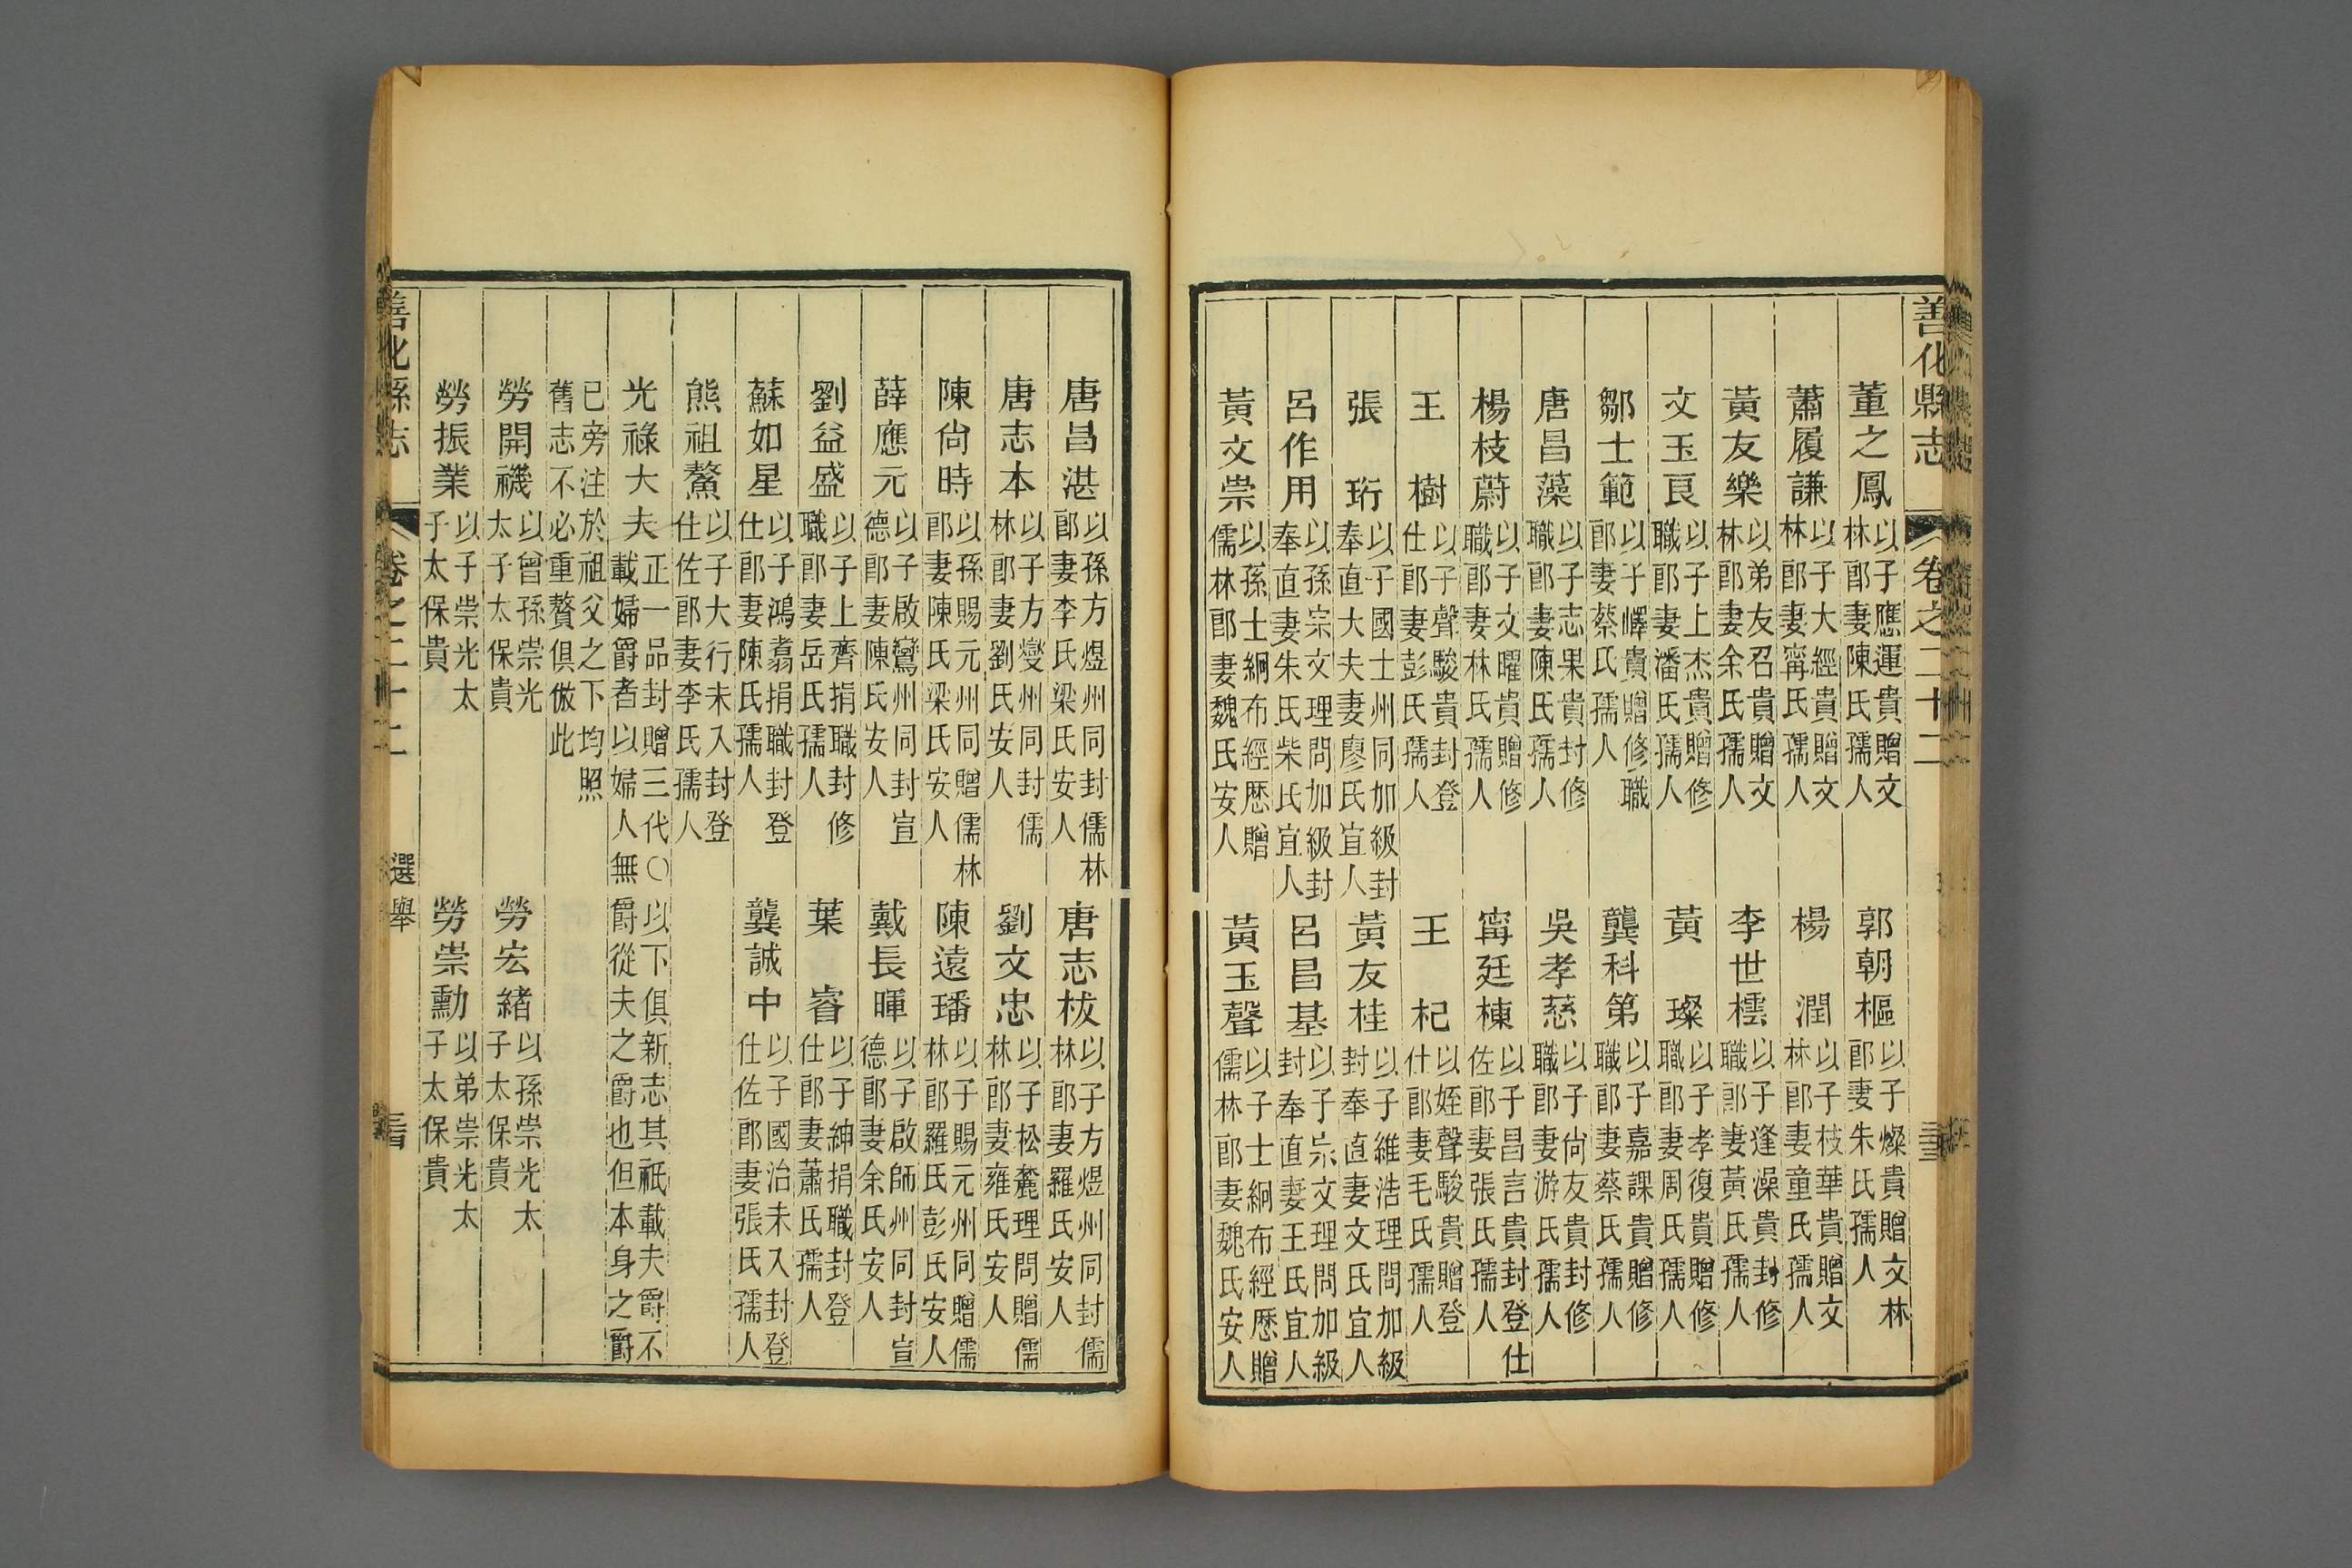 善化縣志 卷之二十二
董之鳳 以子應運貴贈文林郎妻陳氏孺人 郭朝樞 以子燦貴贈文林郎妻朱氏孺人
蕭履謙 以子大經貴贈文林郎妻甯氏孺人 楊潤 以子枝華貴贈文林郎妻童氏孺人
黃友樂 以弟友召貴贈文林郎妻余氏孺人 李世櫺 以子逢澡貴封修職郎妻黃氏孺人
文玉良 以子上杰貴贈修職郎妻潘氏孺人 黃璨 以子孝復貴贈修職郎妻周氏孺人
鄒士範 以子嶧貴贈修職郎妻蔡氏孺人 龔科第 以子嘉課貴贈修職郎妻蔡氏孺人
唐昌藻 以子志果貴封修職郎妻陳氏孺人 吳孝慈 以子尙友貴封修職郎妻游氏孺人
楊枝蔚 以子文曜貴贈修職郎妻林氏孺人 甯廷棟 以子昌言貴封登仕佐郎妻張氏孺人
王樹 以子聲駿貴封登仕郎妻彭氏孺人 王杞 以姪聲駿貴贈登仕郎妻毛氏孺人
張珩 以子國士州同加級封奉直大夫妻廖氏宜人 黃友桂 以子維浩理問加級封奉直妻文氏宜人
呂作用 以孫宗文理問加級封奉直妻朱氏柴氏宜人 呂昌基 以子宗文理問加級封奉直妻王氏宜人
黃文崇 以孫士絅布經歷贈儒林郎妻魏氏安人 黃玉聲 以子士絅布經歷贈儒林郎妻魏氏安人
唐昌湛 以孫方煜州同封儒林郎妻李氏梁氏安人 唐志柭 以子方煜州同封儒林郎妻羅氏安人
唐志本 以子方燮州同封儒林郎妻劉氏安人 劉文忠 以子松麓理問贈儒林郎妻雍氏安人
陳尙時 以孫賜元州同贈儒林郎妻陳氏梁氏安人 陳遠璠 以子賜元州同贈儒林郎羅氏彭氏安人
薛應元 以子啟鸞州同封宣德郎妻陳氏安人 戴長暉 以子啟師州同封宣德郎妻余氏安人
劉益盛 以子上齊捐職封修職郎妻岳氏孺人 葉睿 以子紳捐職封登仕郎妻蕭氏孺人
蘇如星 以子鴻翥捐職封登仕郎妻陳氏孺人 龔誠中 以子國治未入封登仕佐郎妻張氏孺人
熊祖鰲 以子大行未入封登仕佐郎妻李氏孺人
光祿大夫 正一品封贈三代○以下俱新志其祇載夫爵不載婦爵者以婦人無爵從夫之爵也但本身之爵
已旁注於祖父之下均照舊志不必重贅俱倣此
勞開禨 以曾孫崇光太子太保貴 勞宏緒 以孫崇光太子太保貴
勞振業 以子崇光太子太保貴 勞崇勳 以弟崇光太子太保貴
善化縣志 卷之二十二 選舉